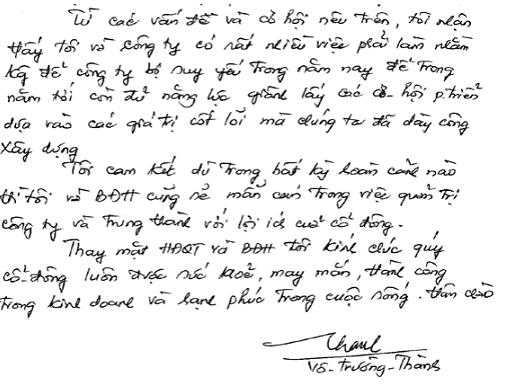 Từ các vấn đề và cơ hội nêu trên, tôi nhận
thấy tôi và công ty có rất nhiều việc phải làm nhằm
để công ty bị suy yếu trong năm nay để trong
năm tới còn đủ năng lực giành lấy các cơ hội p.triển
dựa vào các giá trị cốt lõi mà chúng ta đã dày công
xây dựng
Tôi cam kết dù trong bất kỳ hoàn cảnh nào
thì tôi và BĐH cũng sẽ mẫn cán trong việc quản trị
công ty và trung thành với lợi ích của cổ đông.
Thay mặt HĐQT và BĐH tôi kính chúc quý
cổ đông luôn được sức khoẻ, may mắn, thành công
trong kinh doanh và hạnh phúc trong cuộc sống. Thân chào
Thanh
Võ-Trường-Thành